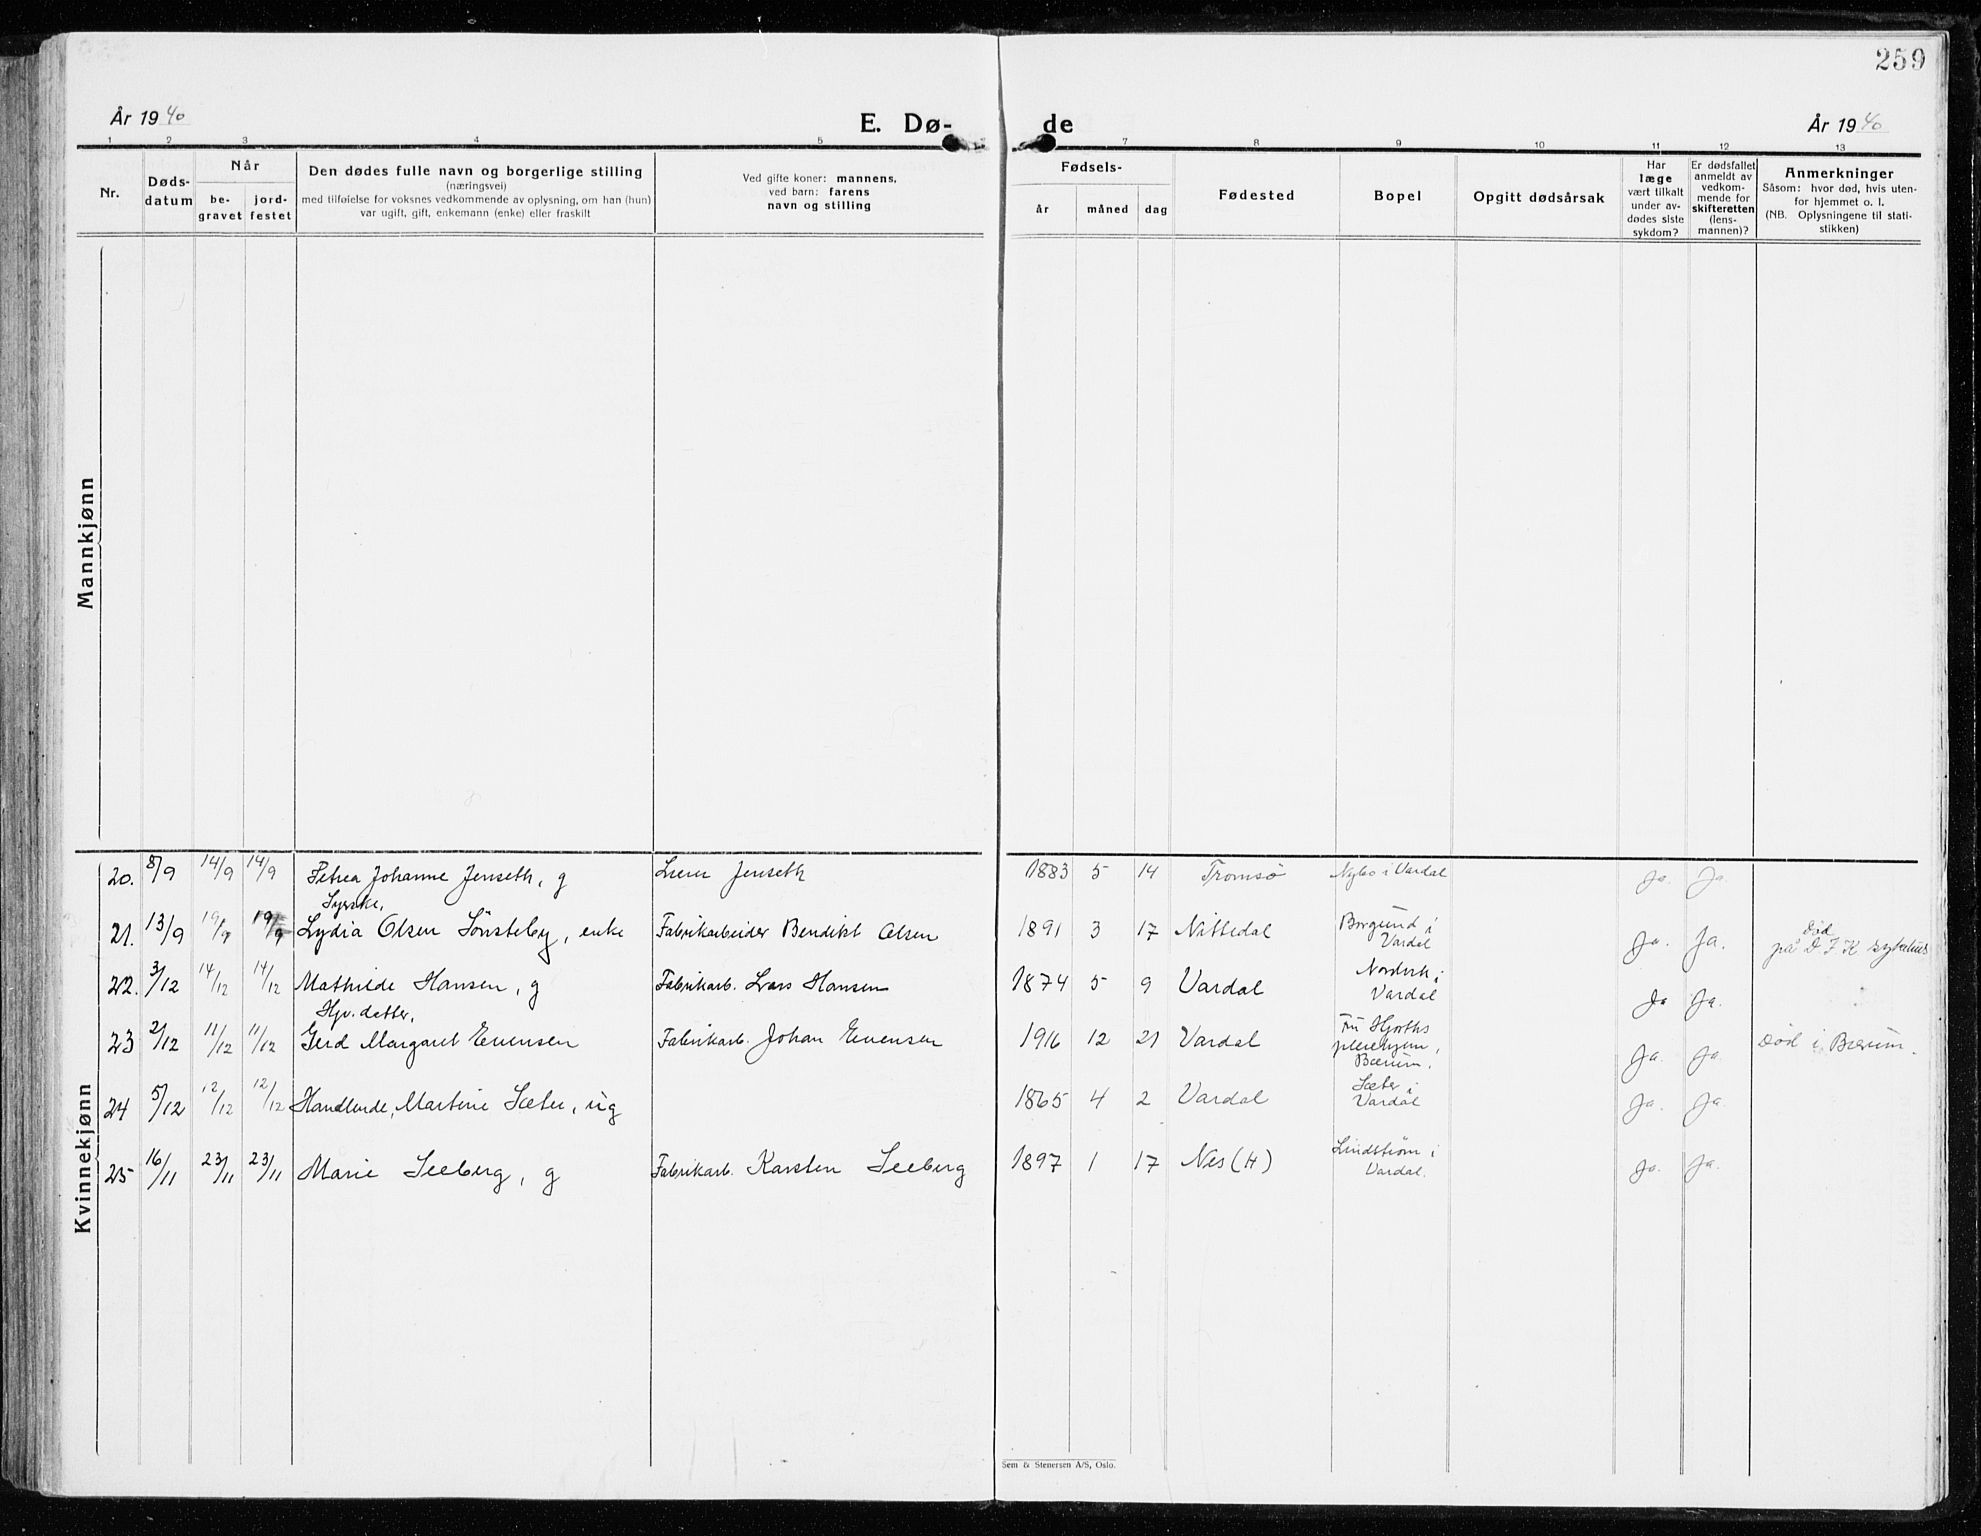 259
År 1940
E. Dø-
de
År 1940
1 2 3 4 5 7 8 9 10 11 12 13
Nr.
Døds-
datum
Når
be-
gravet
jord-
festet
Den dødes fulle navn og borgerlige stilling
(næringsvei)
med tilføielse for voksnes vedkommende av oplysning, om han (hun)
var ugift, gift, enkemann (enke) eller fraskilt
Ved gifte koner: mannens,
ved barn: farens
navn og stilling
Fødsels-
år
måned
dag
Fødested
Bopel
Opgitt dødsårsak
Har
læge
vært tilkalt
under av-
dødes siste
sykdom?
Er dødsfallet
anmeldt av
vedkom-
mende for
skifteretten
(lens-
mannen)?
Anmerkninger
Såsom: hvor død, hvis uten-
for hjemmet o. l.
(NB. Oplysningene til stati-
stikken)
Mannkjønn
Kvinnekjønn
20. 8/9 14/9 14/9 Petrea Johanne Jenseth, g Jenseth 1883 5 14 Tromsø Nybo i Vardal Ja. Ja.
Syerske,
21. 13/9 19/9 19/9 Lydia Olsen Sønsteby, enke Fabrikarbeider Bendikt Olsen 1891 3 17 Nittedal Borgund i
Vardal Ja. Ja. Død
på D. F. K sykehus
22. 3/12 14/12 14/12 Mathilde Hansen, g Fabrikarb. Lars Hansen 1874 5 9 Vardal Nordvik i
Vardal Ja Ja.
Hjv. datter,
23 2/12 11/12 11/12 Gerd Margaret Evensen Fabrikarb. Johan Evensen 1916 12 21 Vardal Fru Hjorths
pleiehjem,
Bærum. Ja. Ja Død i Bærum.
24 5/12 12/12 12/12 Handlende, Martine Sæter, ug 1865 4 2 Vardal Sæter i
Vardal Ja. Ja.
25 16/11 23/11 23/11 Marie Seeberg, g Fabrikarb. Karsten Seeberg 1897 1 17 Nes (H) Lindstrøm i
Vardal. Ja. Ja.
Sem & Stenersen A/S, Oslo.